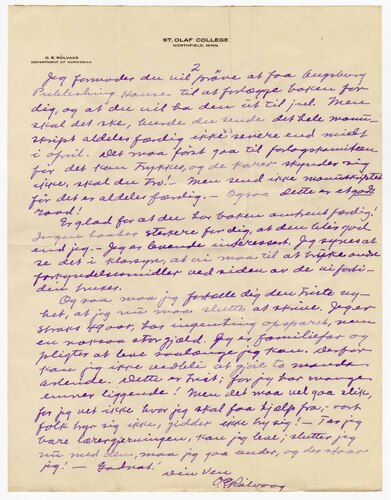 ST. OLAF COLLEGE
NORTHFIELD, MINN.
O. E. RÖLVAAG
DEPARTMENT OF NORWEGIAN
2
Jeg formoder du vil prøve at faa Augsburg
Publishing House til at forlægge boken for
dig, og at du vil ha den ut til jul. Men
skal det ske, burde du sende det hele manu-
skript aldeles færdig ikke senere end midt
i april. Det maa først gaa til forlagskomiteen
før det kan trykkes, og de karer skynder sig
ikke, skal du tro! — Men send ikke manuskriptet
før det er aldeles færdig. — Ogsaa dette er et godt
raad!
Er glad for at du har boken omtrent færdig!
Ingen haaber sterkere for dig, at den blir god
end jeg. — Jeg er levende interessert. Jeg synes at
se det i klarsyn, at vi maa til at bruke andre
forkyndelsesmidler ved siden av de vi forti-
den bruker.
Og saa maa jeg fortælle dig den triste ny-
het, at jeg nu maa slutte at skrive. Jeg er
straks 50 aar, har ingenting opsparet, men
en nokså stor gjeld. Jeg er familiefar og
pligter at leve saalænge jeg kan. Derfor
kan jeg ikke vedbli at gjøre to mands
arbeide. Dette er trist; for jeg har mange
emner liggende! Men det maa vel gaa slik,
for jeg vet ikke hvor jeg skal faa hjælp fra; vort
folk bryr sig ikke, gidder ikke bry sig! — Tar jeg
bare lærergjerningen, kan jeg leve; slutter jeg
nu med den, maa jeg gaa under, og der staar
jeg! — Godnat!
Din ven
O. E. Rölvaag